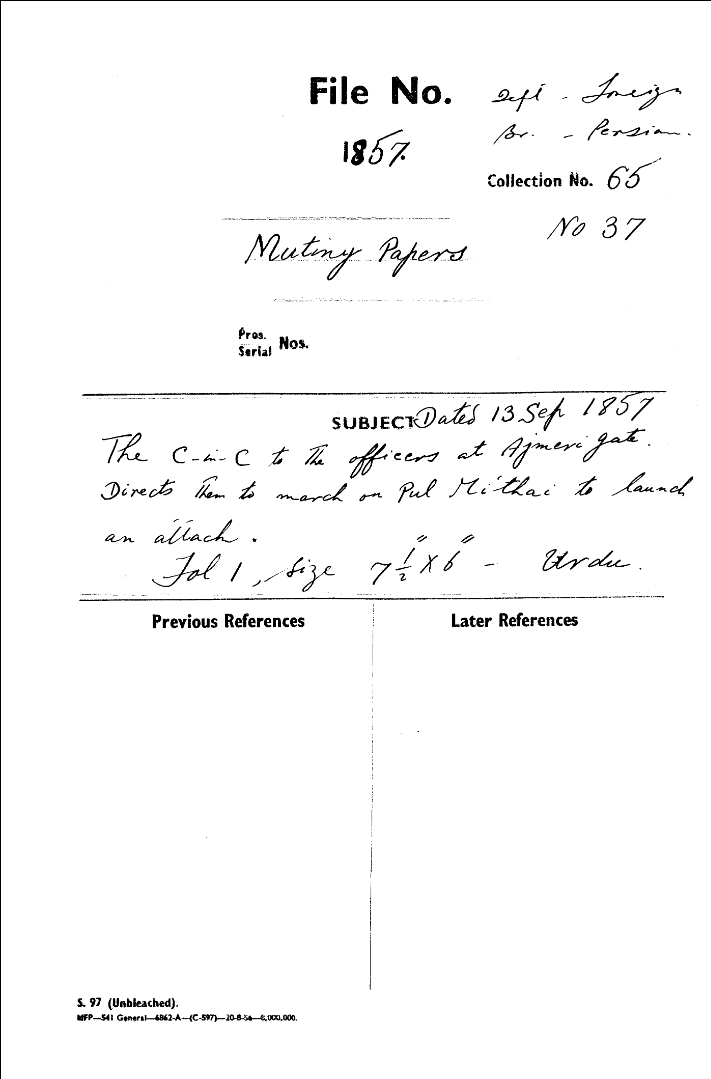 File No.
Dept - Foreign
Br. - Persian.
1857.
Collection No. 65
No 37
Mutiny Papers
Pros.
Serial Nos.
SUBJECT Dated 13 Sep 1857
The C-in-C to the officers at Ajmeri gate.
Directs them to march on Pul Mithai to launch
an attach.
Fol 1, size 7 1/2" X 6" - Urdu.
Previous References
Later References
S. 97 (Unbleached).
MFP—541 General—6862-A—(C-597)—20-8-56—6,000,000.